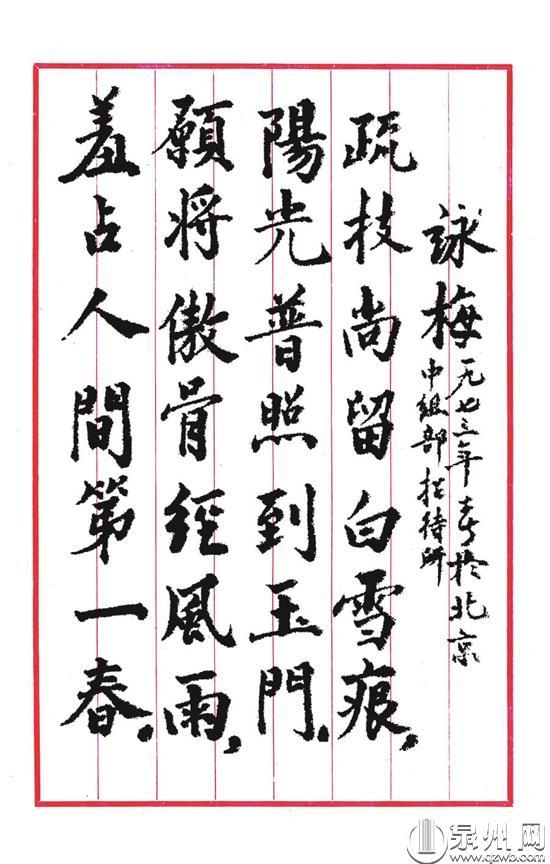 詠梅 一九七三年春於北京
中組部招待所
疏枝尚留白雪痕，
陽光普照到玉門．
願將傲骨經風雨，
羞占人間第一春．
泉州网
www.qzwb.com